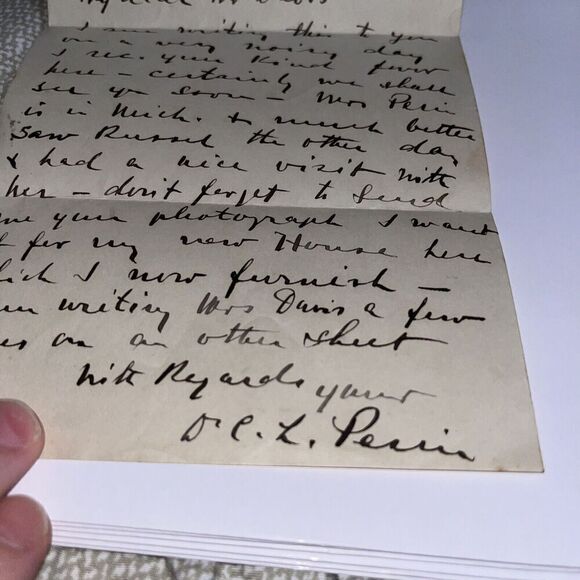 My dear Mr Davis
I am writing this to you
on a very noisy day
I rec. your kind favor
here – certainly we shall
see yo soon – Mrs Perin
is in Mich. & much better
saw Russel the other day
& had a nice visit with
her – don't forget to send
me your photograph I want
it for my new House here
which I now furnish –
am writing Mrs Davis a few
on an other sheet
with Regards yours
Dr C. L. Perin